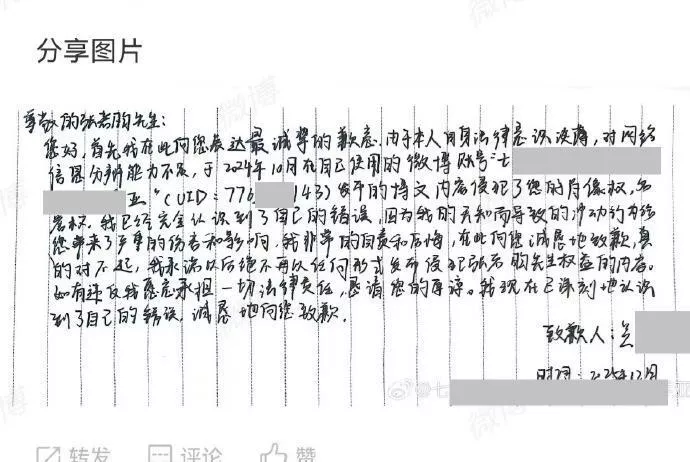 分享图片
尊敬的张若昀先生：
您好，首先我在此向您表达最诚挚的歉意。由于本人因自身法律意识淡薄，对网络
信息分辨能力不足，于2024年10月在自己使用的微博账号"七
亚"（UID：776 143）发布的博文内容侵犯了您的肖像权，名
誉权。我已经完全认识到了自己的错误，因为我的无知而导致的冲动行为给
您带来了严重的伤害和影响，我非常的自责和后悔，在此向您诚恳地致歉，真
的对不起，我承诺以后绝不再以任何形式发布侵犯张若昀先生权益的内容。
如有违反我愿意承担一切法律责任，恳请您的原谅。我现在已深刻地认识
到了自己的错误，诚恳地向您致歉。
致歉人：兰
时间：2025年12月
@七
转发 评论 赞
微博